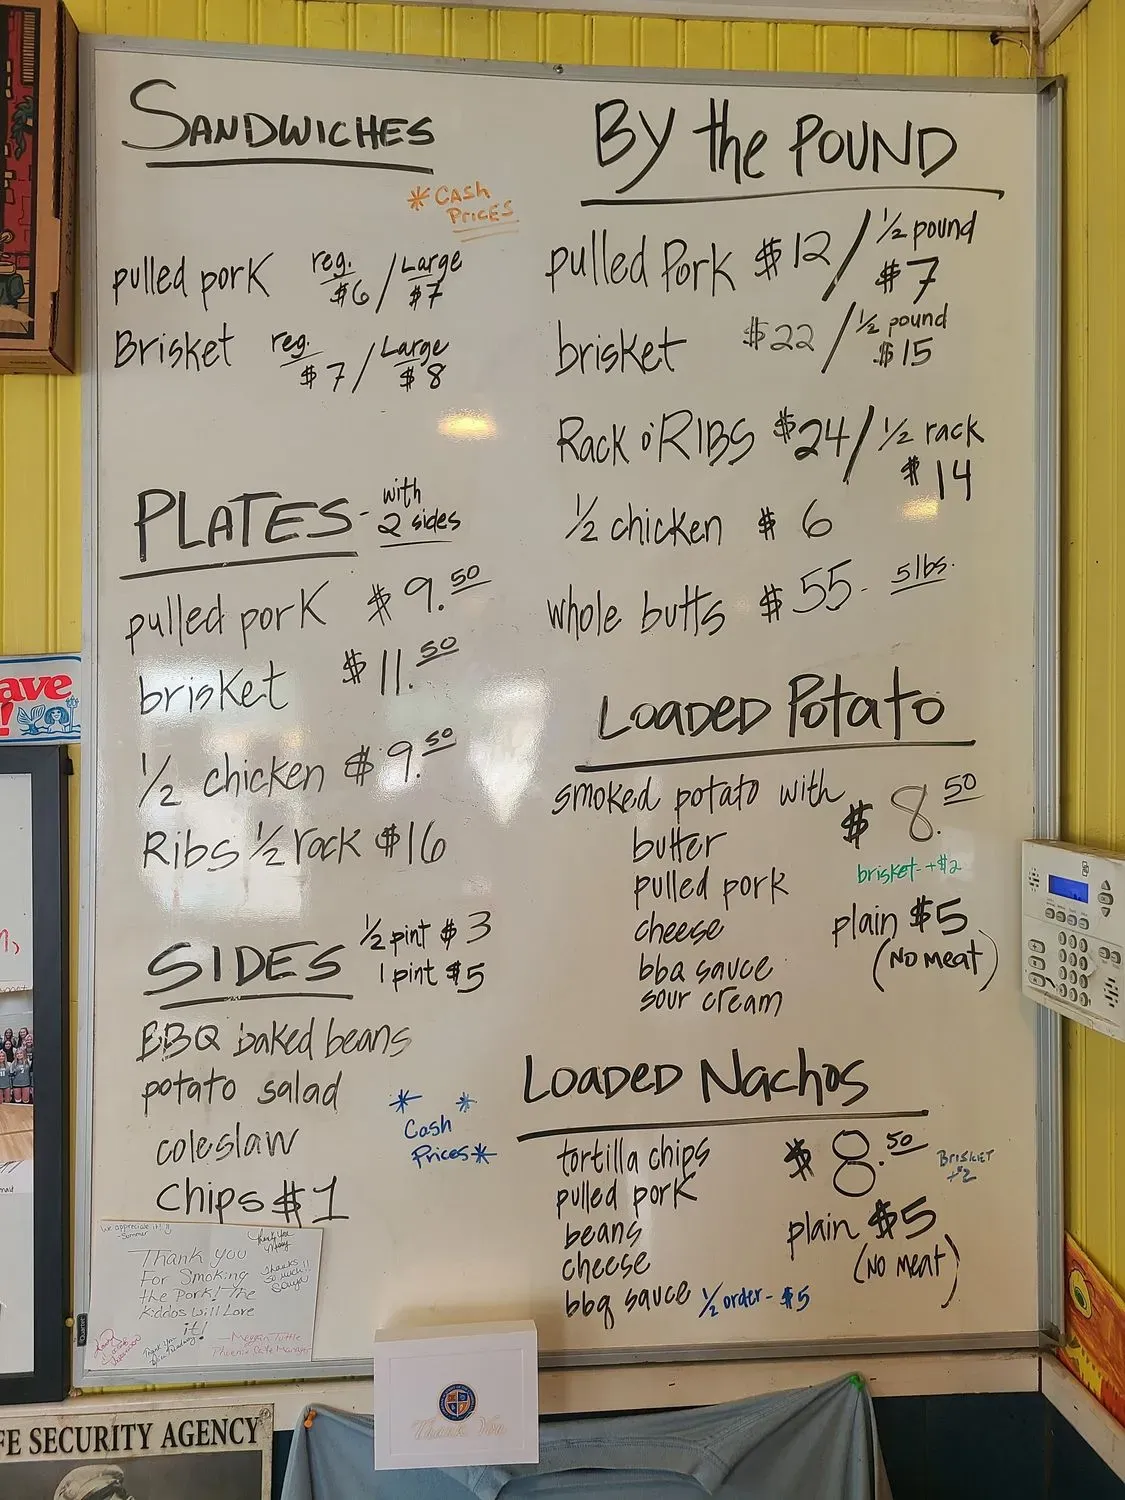 SANDWICHES
* CASH
PRICES
pulled pork reg. $6 / Large $7
Brisket reg. $7 / Large $8
PLATES - with 2 sides
pulled pork $9.50
brisket $11.50
1/2 chicken $9.50
Ribs 1/2 rack $16
SIDES 1/2 pint $3
1 pint $5
BBQ baked beans
potato salad
coleslaw
Chips $1
* *
Cash
Prices*
BY the POUND
pulled Pork $12 / 1/2 pound $7
brisket $22 / 1/2 pound $15
Rack o' RIBS $24 / 1/2 rack $14
1/2 chicken $6
whole butts $55 - 5lbs.
LOADED Potato
smoked potato with $8.50
butter
pulled pork brisket - +$2
cheese plain $5
bbq sauce (NO meat)
sour cream
LOADED Nachos
tortilla chips $8.50 BRISKET +2
pulled pork
beans plain $5
cheese (NO meat)
bbq sauce 1/2 order - $5
we appreciate it!
-Summer
Thank You
Thank you
For Smoking
the Pork! The
Kiddos Will Love
it!
Thanks
so much!!
Thank You
-Megan Tuttle
Quartet
Thank You
ave
!
FE SECURITY AGENCY